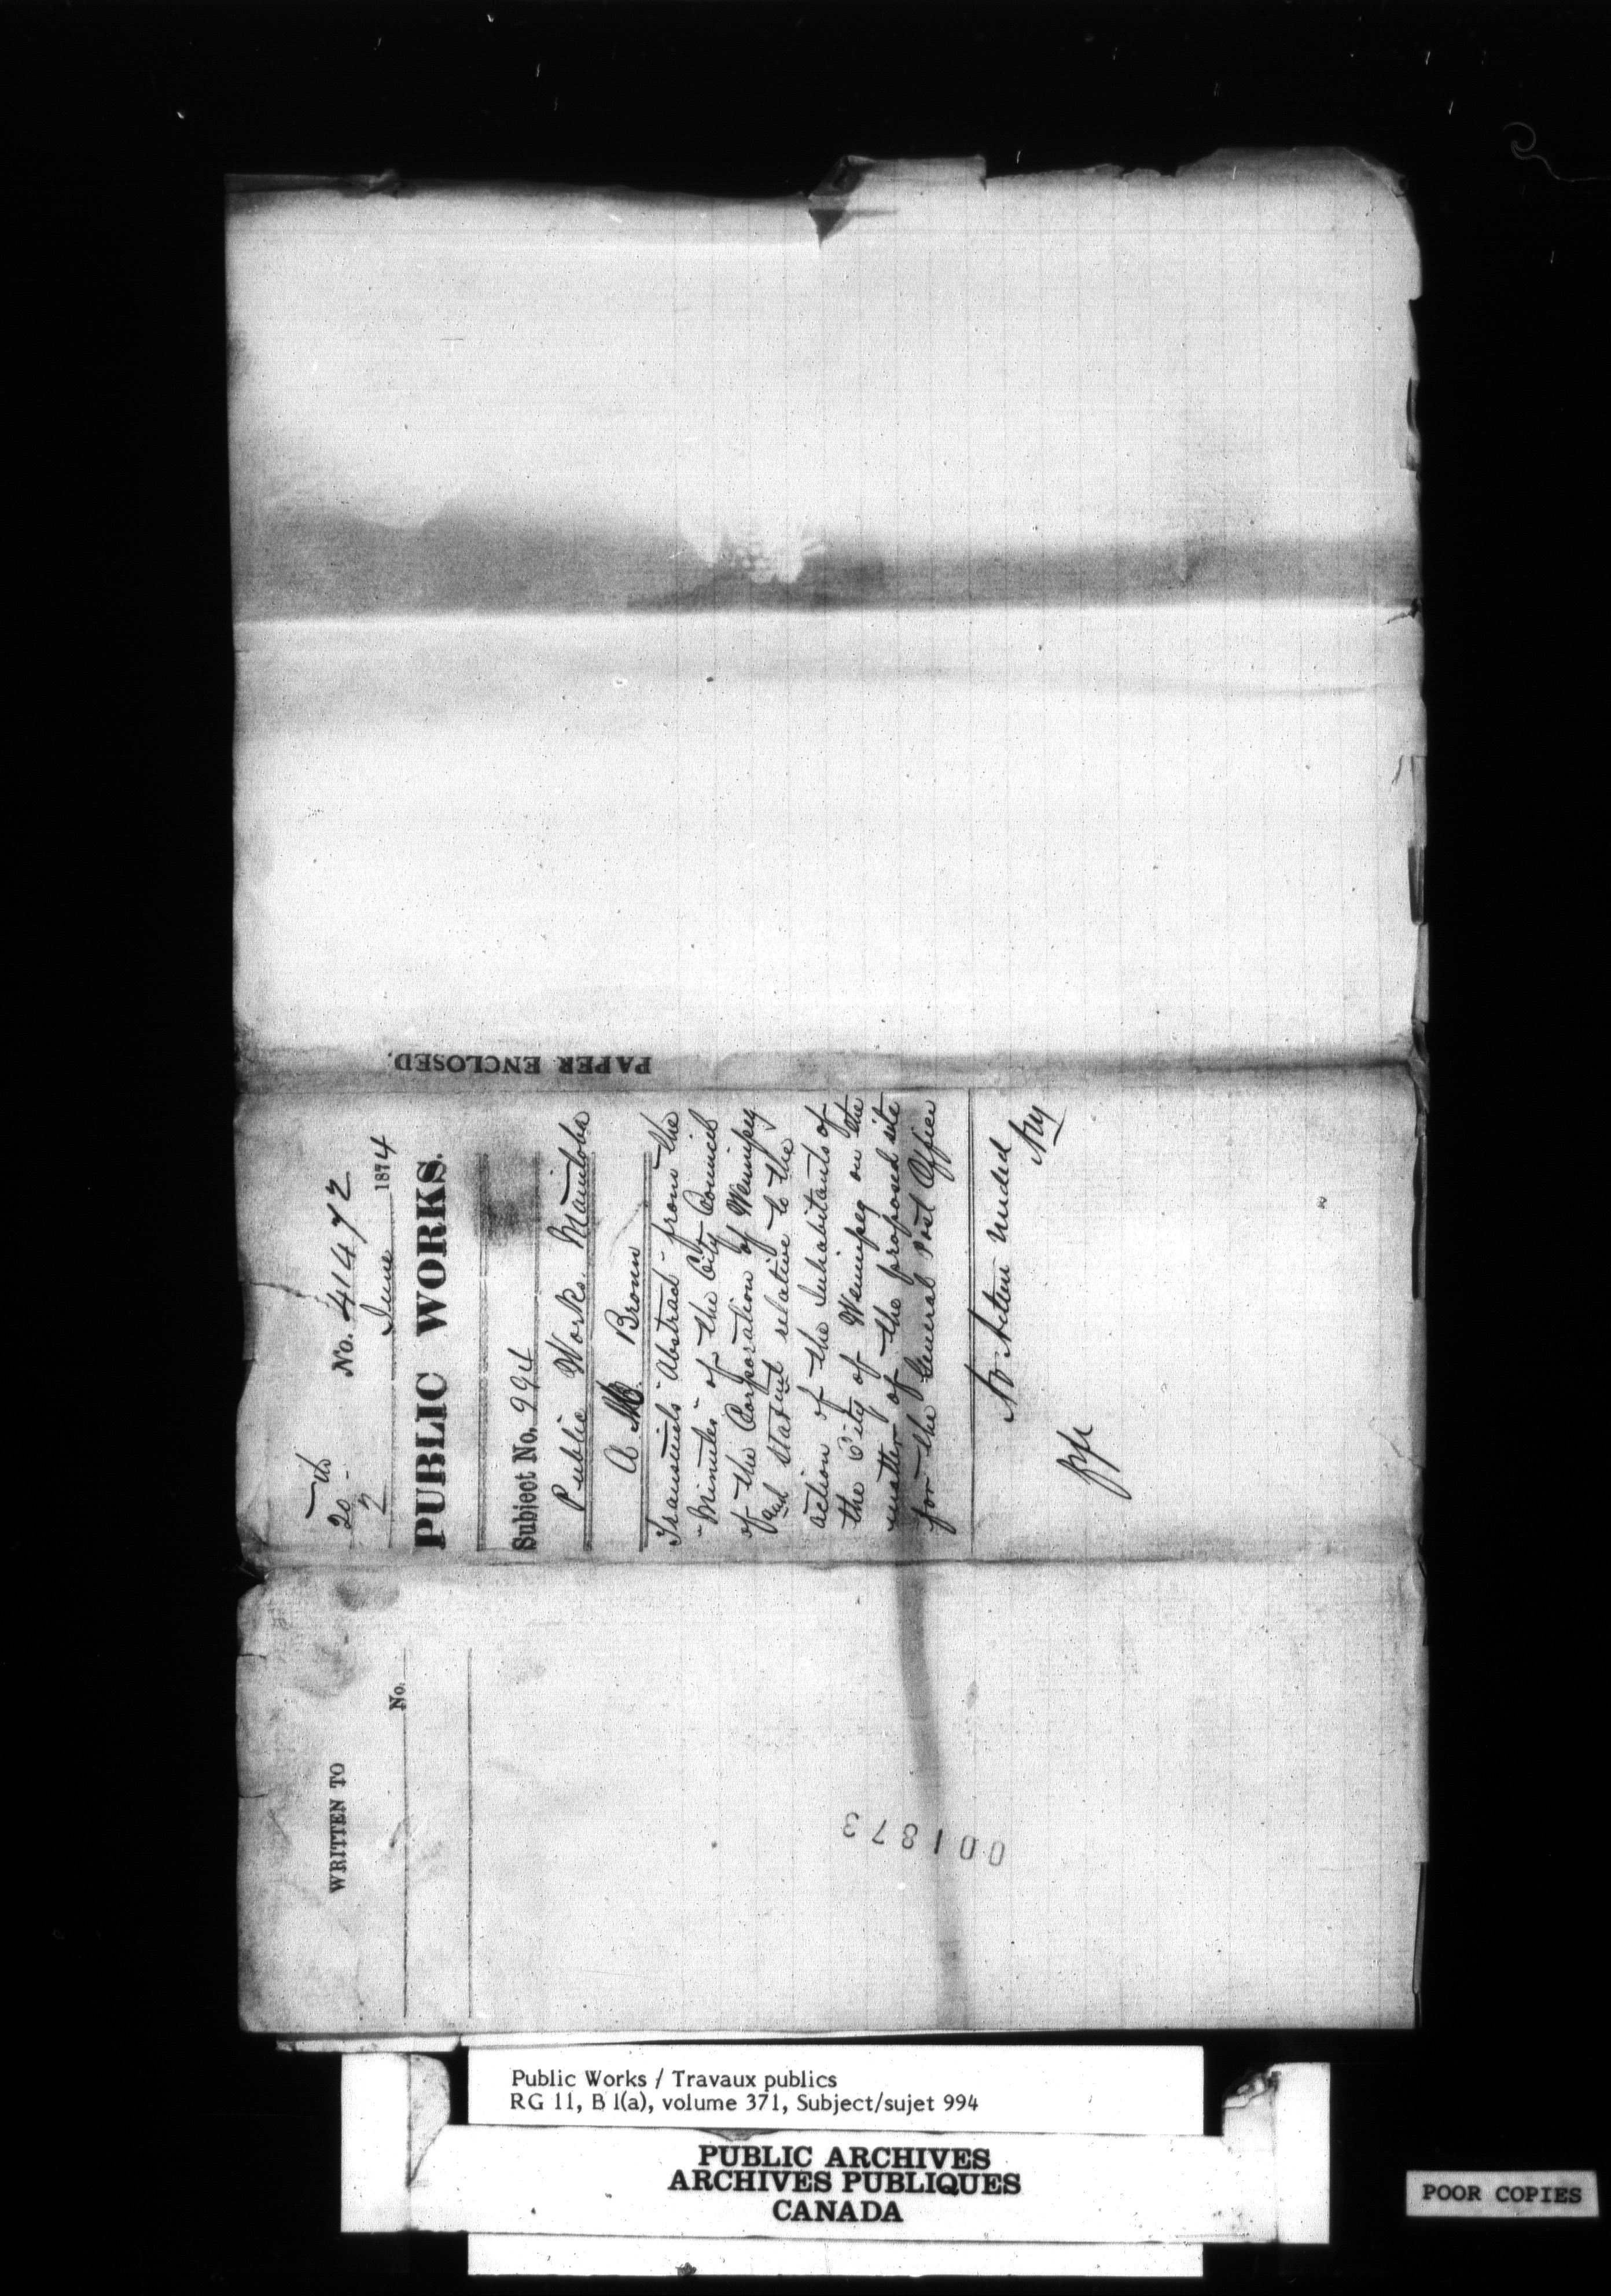 20th
7
No. 41472
June 1874
PUBLIC WORKS.
Subject No. 994
Public Works. Manitoba
A. M. Brown
Transmits "Abstract" from the
"Minutes" of the City Council
of the Corporation of Winnipeg
and Statent relative to the
action of the Inhabitants of
the City of Winnipeg on the
matter of the proposed site
for the General Post Office
No Action needed
PAPER ENCLOSED.
WRITTEN TO
No.
001873
Public Works / Travaux publics
RG 11, B 1(a), volume 371, Subject/sujet 994
PUBLIC ARCHIVES
ARCHIVES PUBLIQUES
CANADA
POOR COPIES